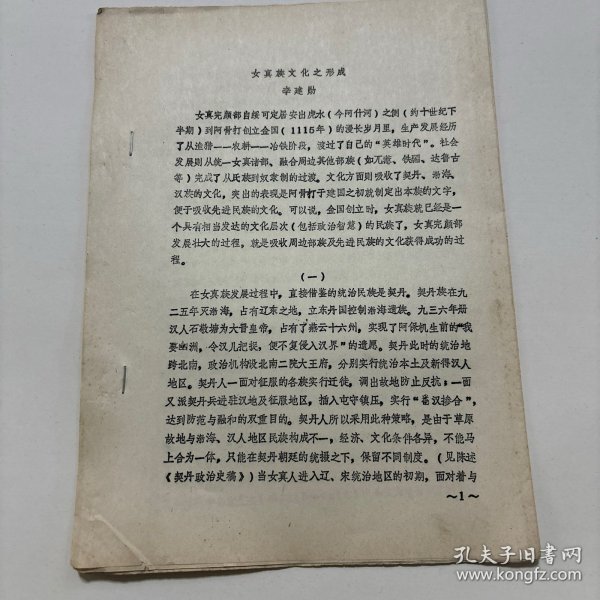 女真族文化之形成
李建勋
女真完颜部自绥可定居安出虎水（今阿什河）之侧（约十世纪下
半期）到阿骨打创立金国（1115年）的漫长岁月里，生产发展经历
了从渔猎——农耕——冶铁阶段，渡过了自己的“英雄时代”。社会
发展则从统一女真诸部、融合周边其他部族（如兀惹、铁骊、达鲁古
等）完成了从氏族到奴隶制的过渡。文化方面则吸收了契丹、渤海、
汉族的文化，突出的表现是阿骨打于建国之初就制定出本族的文字，
便于吸收先进民族的文化。可以说，金国创立时，女真族就已经是一
个具有相当发达的文化层次（包括政治智慧）的民族了，女真完颜部
发展壮大的过程，就是吸收周边部族及先进民族的文化获得成功的过
程。
（一）
在女真族发展过程中，直接借鉴的统治民族是契丹。契丹族在九
二五年灭渤海，占有辽东之地，立东丹国控制渤海遗族。九三六年册
汉人石敬塘为大晋皇帝，占有了燕云十六州，实现了阿保机生前的“我
要幽洲，令汉儿把捉，便不复侵入汉界”的遗愿。契丹此时的统治地
跨北南，政治机构设北南二院大王府，分别实行统治本土及新得汉人
地区。契丹人一面对征服的各族实行迁徙，调出故地防止反抗；一面
又派契丹兵进驻汉地及征服地区，插入屯守镇压，实行“蕃汉掺合”，
达到防范与融和的双重目的。契丹人所以采用此种策略，是由于草原
故地与渤海、汉人地区民族构成不一，经济、文化条件各异，不能马
上合为一体，只能在契丹朝廷的统摄之下，保留不同制度。（见陈述
《契丹政治史稿》）当女真人进入辽、宋统治地区的初期，面对着与
～1～
孔夫子旧书网
www.kongfz.com